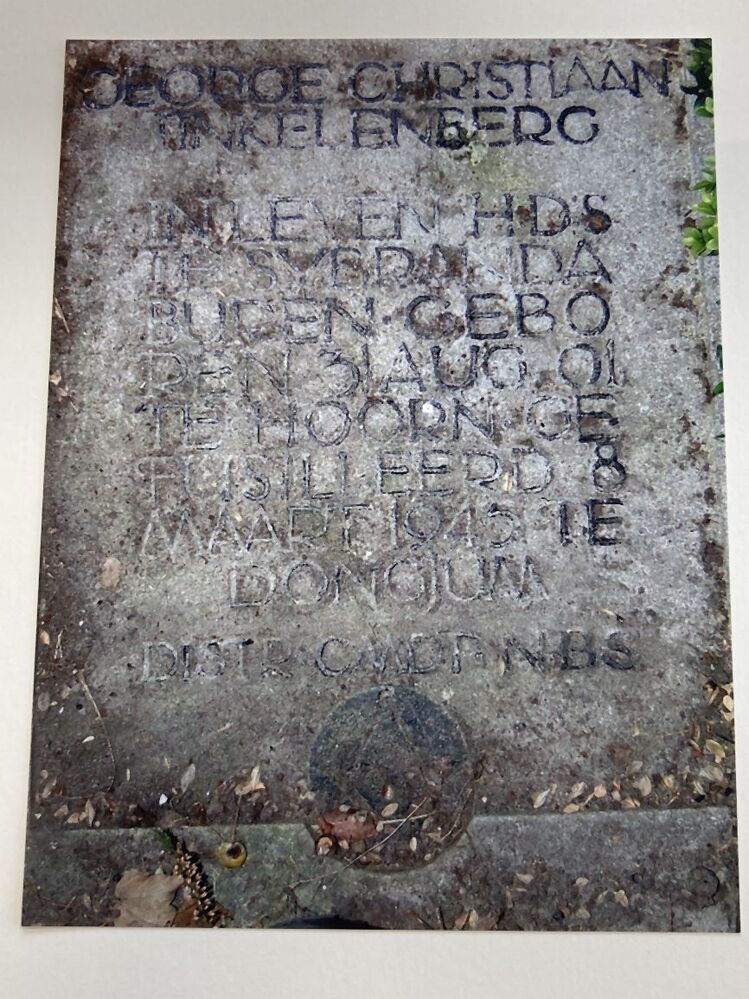 GEORGE CHRISTIAAN
TINKELENBERG
IN LEVEN H·D·S
TE SYBRANDA
BUREN·GEBO
REN 31 AUG 01
TE HOORN·GE
FUSILLEERD 8
MAART 1945 TE
DONGJUM
DISTR·CMDT·N·B·S